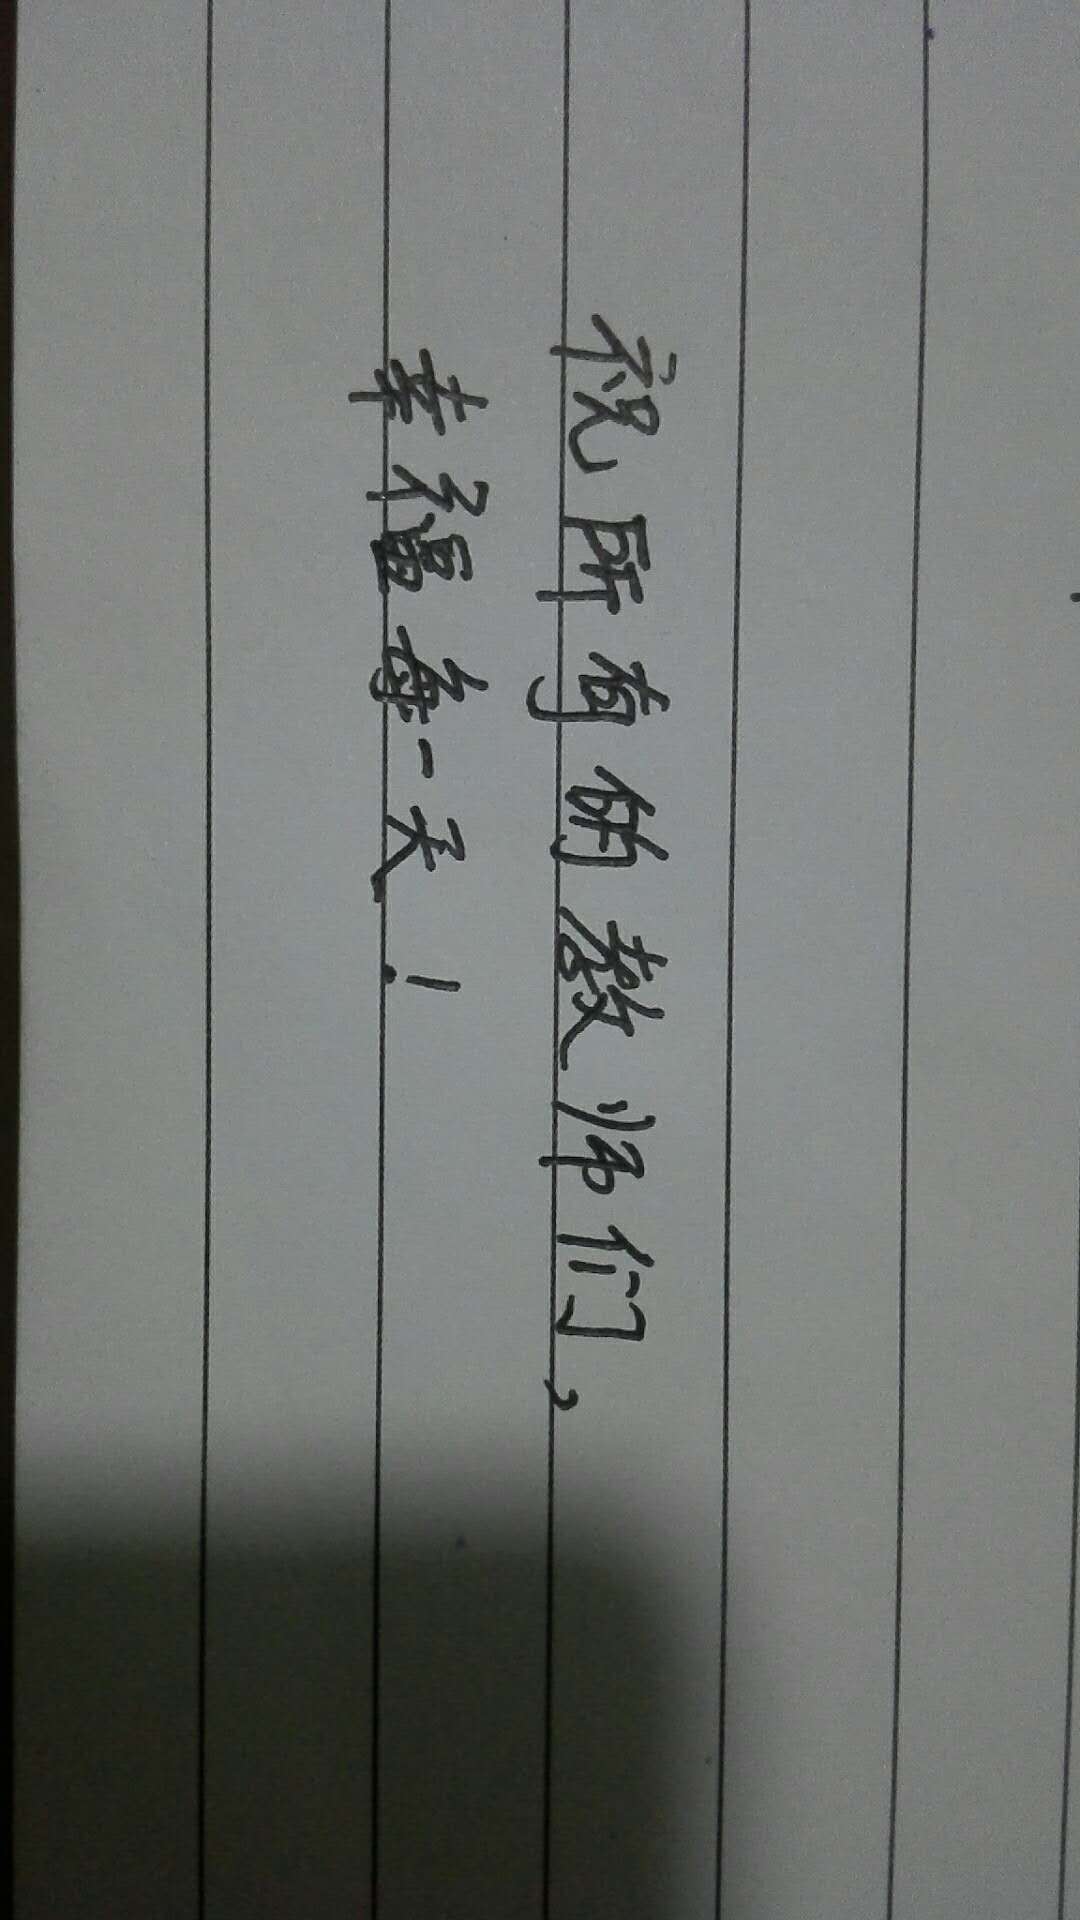 祝所有的教师们，
幸福每一天！